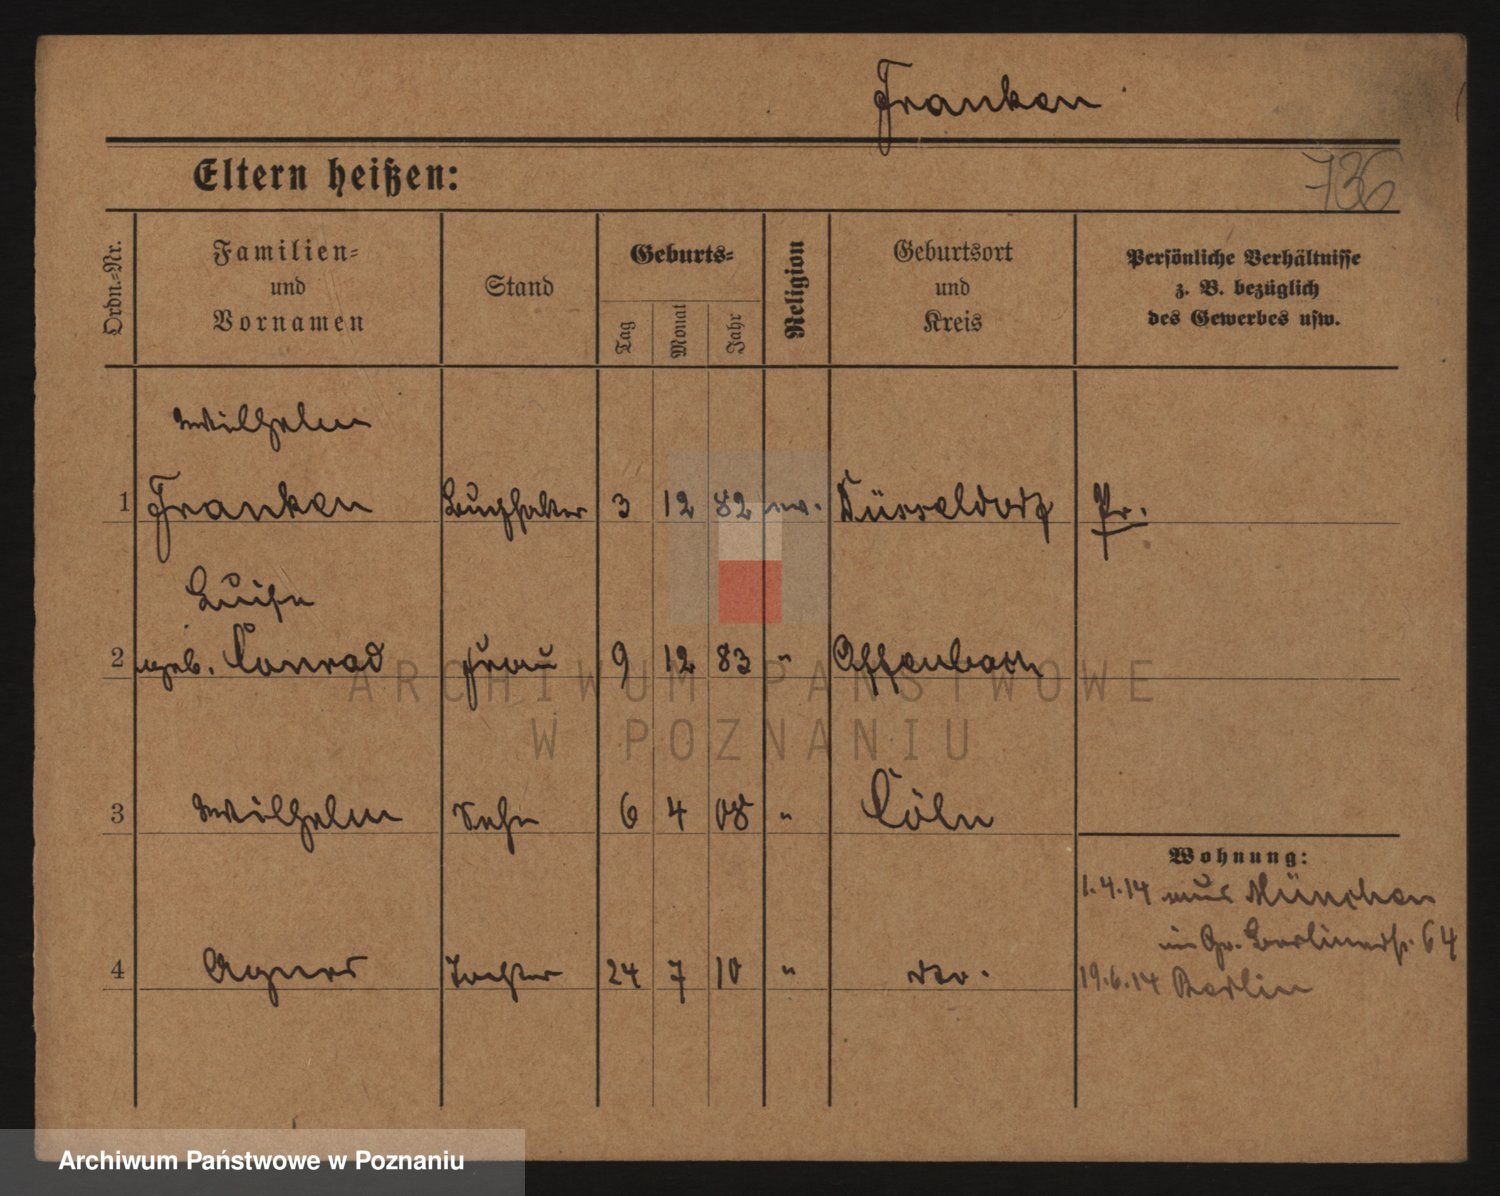 Franken
Eltern heißen:
736
Ordn.-Nr.
Familien-
und
Vornamen
Stand
Geburts-
Tag
Monat
Jahr
Religion
Geburtsort
und
Kreis
Persönliche Verhältnisse
z. B. bezüglich
des Gewerbes usw.
Wilhelm
1 Franken Buchhalter 3 12 82 ev. Düsseldorf Pr.
Luise
2 geb. Conrad Frau 9 12 83 " Offenbach
3 Wilhelm Sohn 6 4 08 " Cöln
Wohnung:
1.4.14 aus München
in Gr. Berlinerstr. 64
4 Agnes Tochter 24 7 10 " do.
19.6.14 Berlin
ARCHIWUM PAŃSTWOWE
W POZNANIU
Archiwum Państwowe w Poznaniu